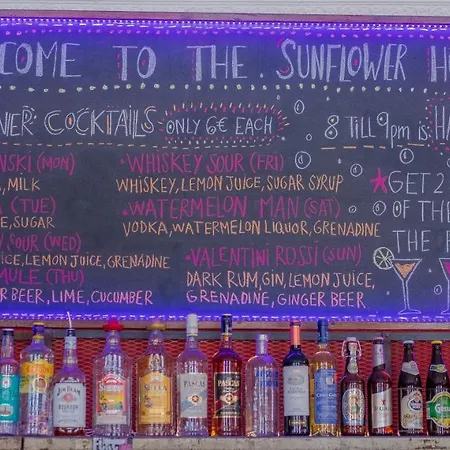 COME TO THE SUNFLOWER HO
NER COCKTAILS ONLY 6€ EACH
8 TILL 9pm is HA
NSKI (MON)
, MILK
(TUE)
E, SUGAR
SOUR (WED)
ICE, LEMON JUICE, GRENADINE
MULE (THU)
R BEER, LIME, CUCUMBER
• WHISKEY SOUR (FRI)
WHISKEY, LEMON JUICE, SUGAR SYRUP
• WATERMELON MAN (SAT)
VODKA, WATERMELON LIQUOR, GRENADINE
• VALENTINI ROSSI (SUN)
DARK RUM, GIN, LEMON JUICE,
GRENADINE, GINGER BEER
★ GET 2
OF THE
THE
JIM BEAM
PASCAS
PASCAS